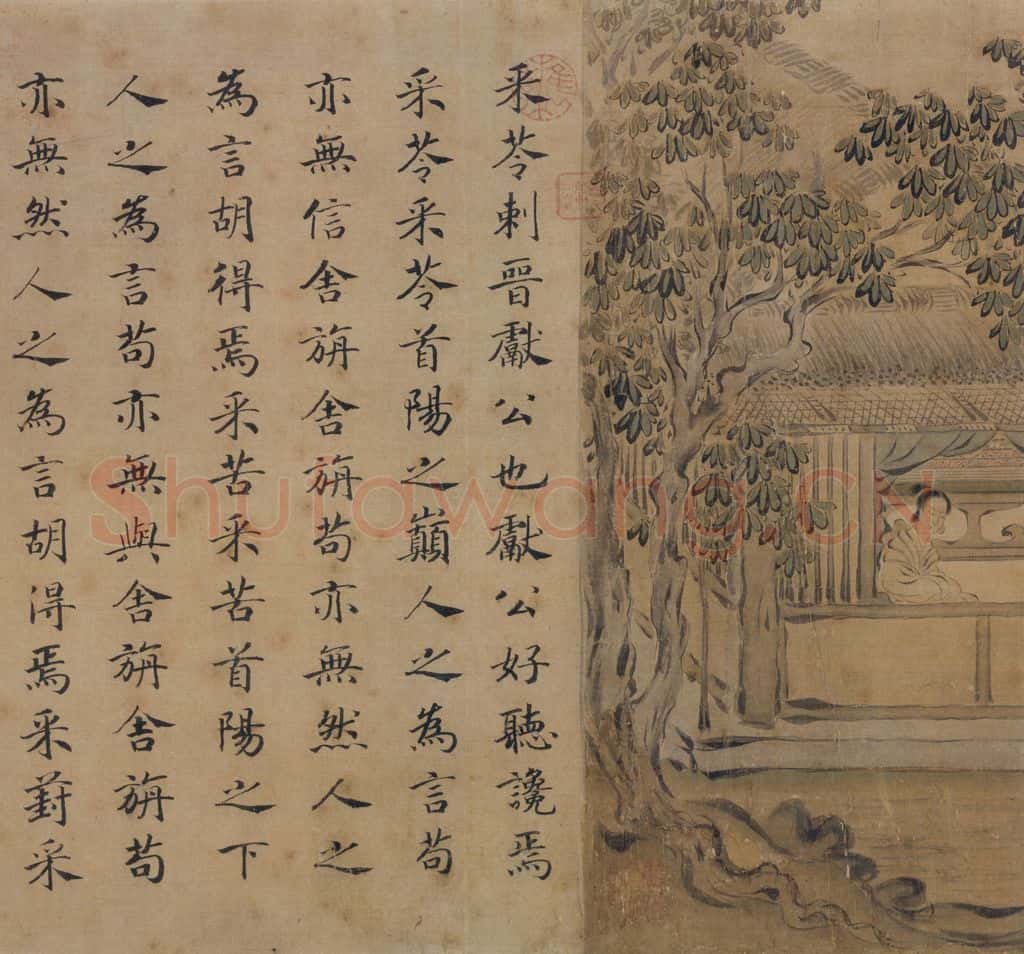 采苓刺晉獻公也獻公好聽讒焉
采苓采苓首陽之巔人之為言苟
亦無信舍旃舍旃苟亦無然人之
為言胡得焉采苦采苦首陽之下
人之為言苟亦無與舍旃舍旃苟
亦無然人之為言胡得焉采葑采
Shufawang.CN